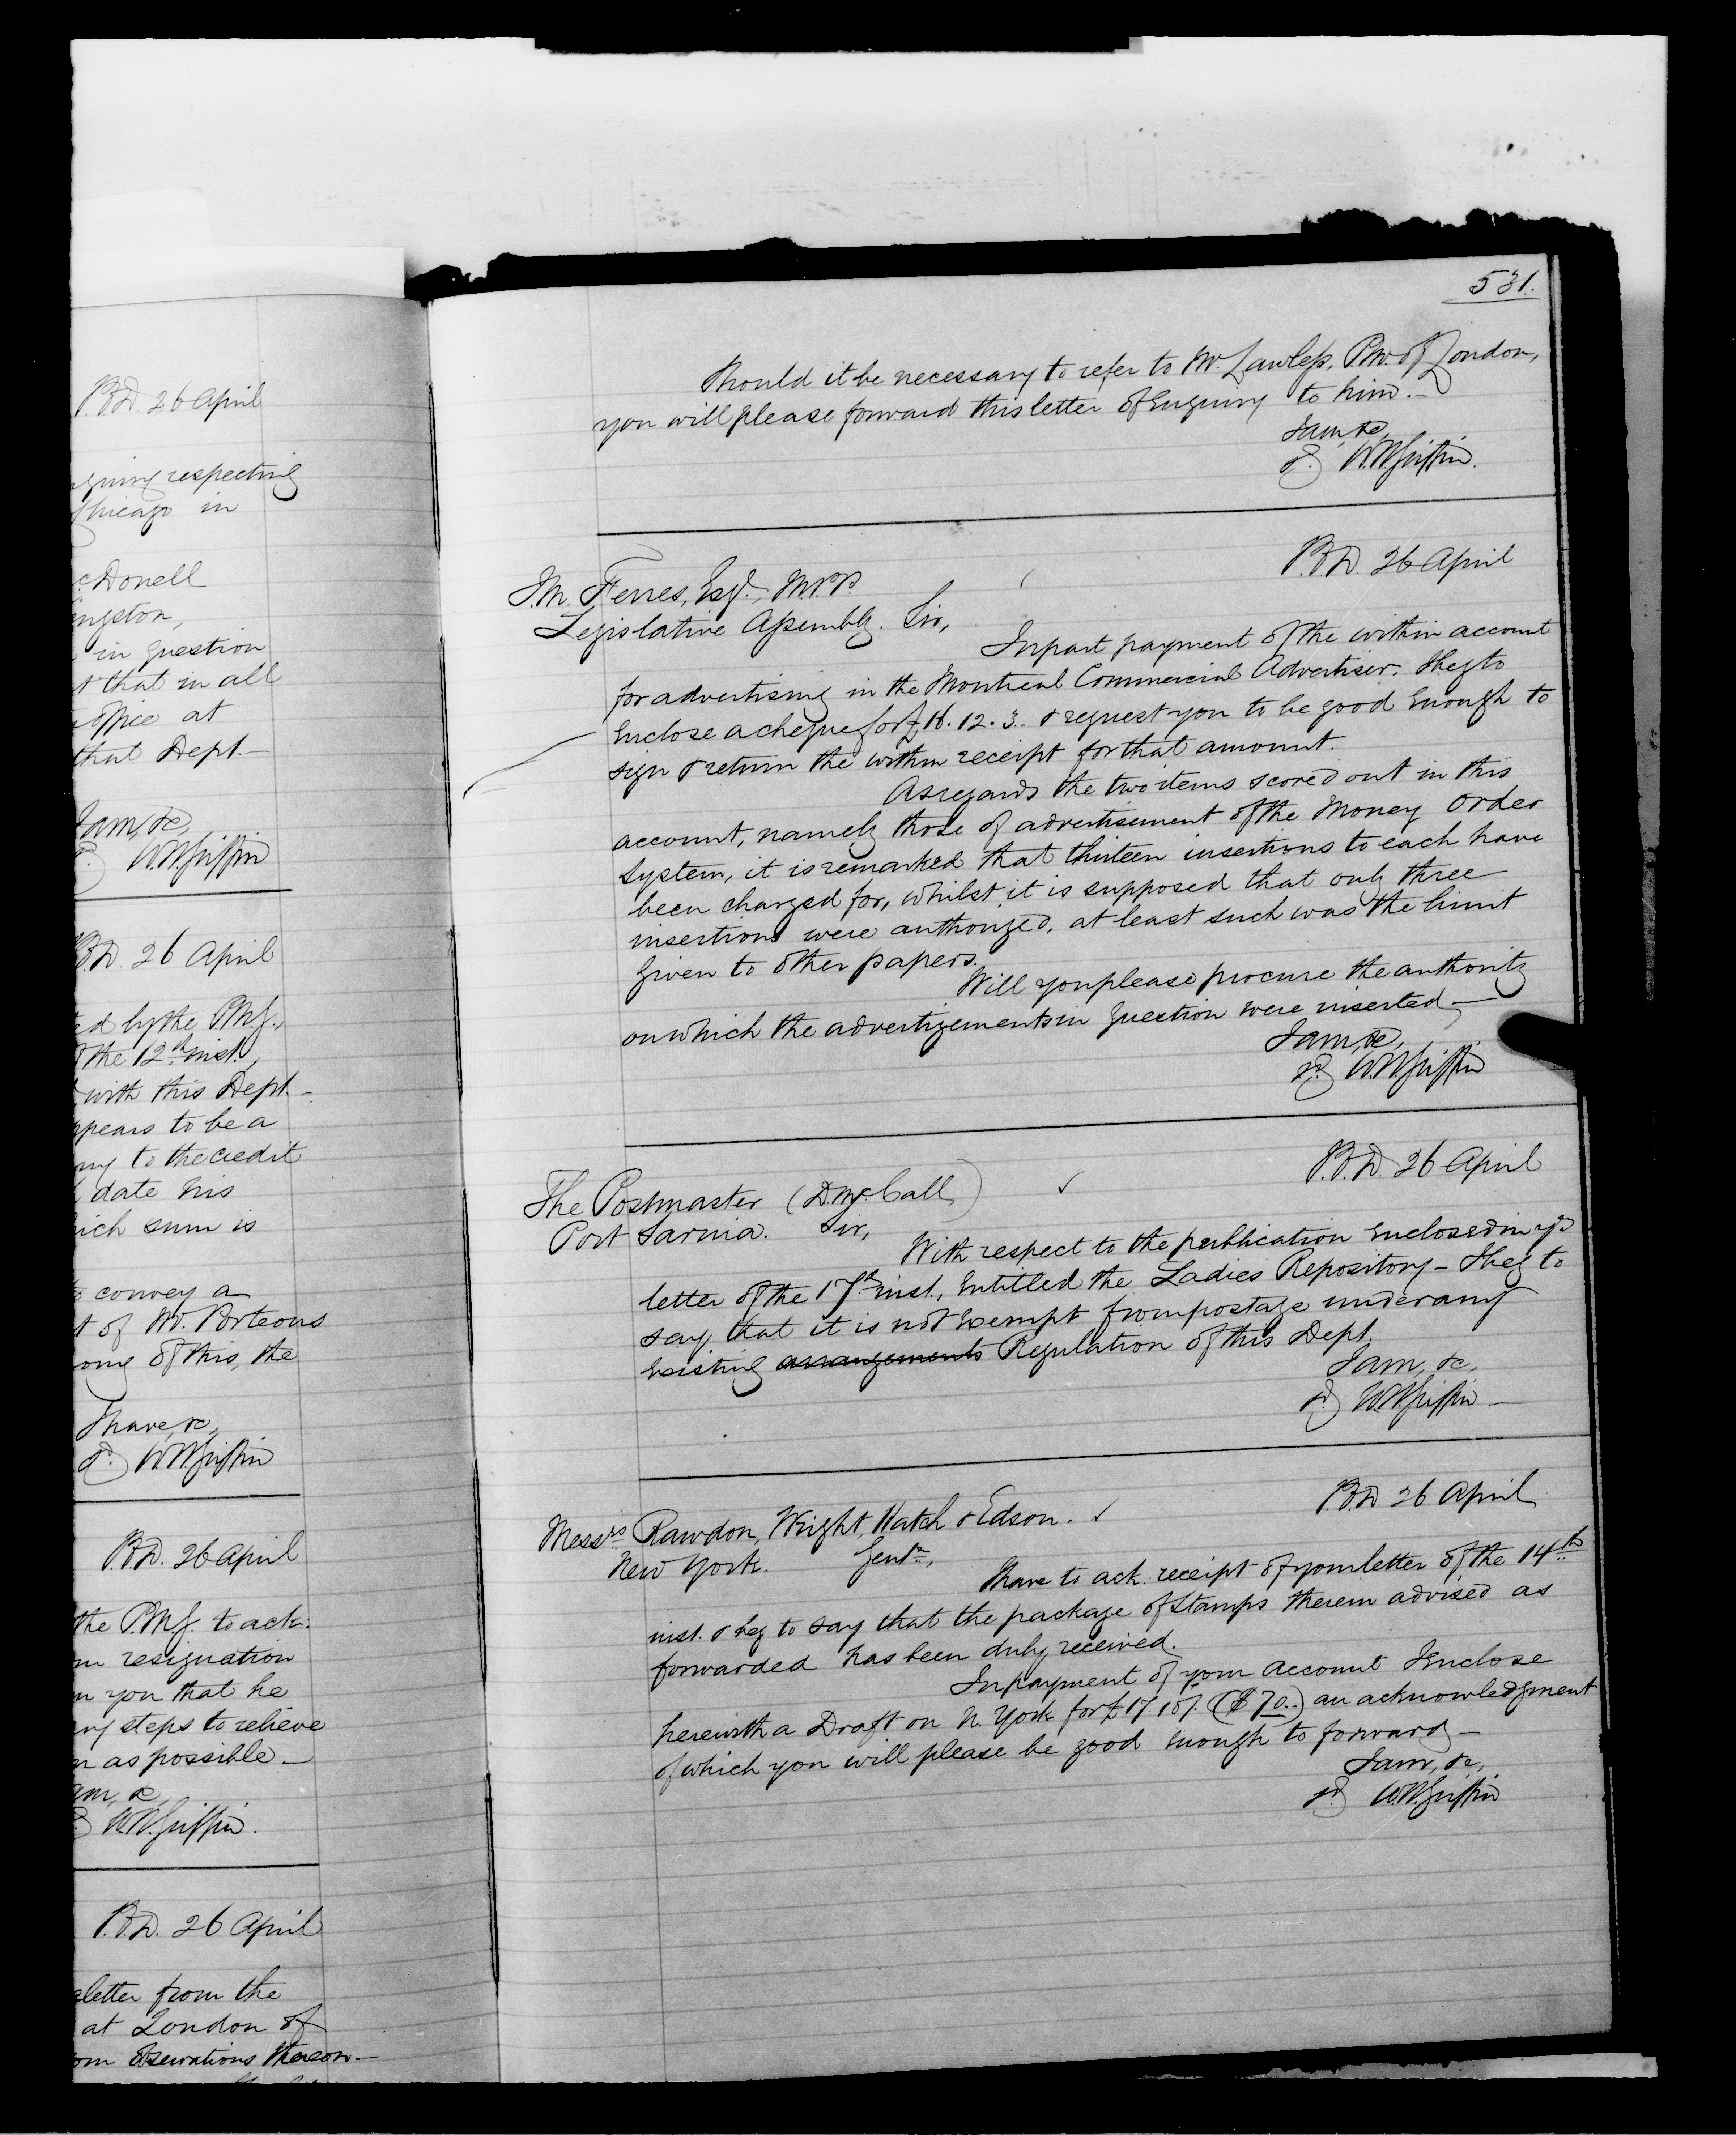 P.O.D. 26 April
respecting
Chicago in
cDonell
ngston,
in question
t that in all
office at
that Dept.—
I am, &c,
W.H. Griffin
P.O.D. 26 April
ed by the P.M.G.,
the 12th inst.,
with this Dept.—
ppears to be a
ny to the credit
date his
ich sum is
convey a
t of Mr. Porteous
ome of this, the
I have, &c,
sd) W.H. Griffin
P.O.D. 26 April
the P.M.G. to ack:
resignation
n you that he
ny steps to relieve
n as possible—
am, &c
W.H. Griffin.
P.O.D. 26 April
letter from the
at London of
observations thereon—
531.
Should it be necessary to refer to Mr. Lawless, P.M. of London,
you will please forward this letter of Enquiry to him.—
I am, &c,
sd) W.H. Griffin.
P.O.D. 26 April
J.M. Ferres, Esqr., M.P.P.
Legislative Assembly. Sir,
In part payment of the within account
for advertising in the Montreal Commercial Advertiser. I beg to
Enclose a cheque for £16.12.3. & request you to be good Enough to
sign & return the within receipt for that amount.
As regards the two items scored out in this
account, namely those of advertisement of the Money Order
System, it is remarked that thirteen insertions to each have
been charged for, whilst it is supposed that only three
insertions were authorized, at least such was the limit
given to other papers.
Will you please procure the authority
on which the advertizements in question were inserted—
I am, &c,
sd) W.H. Griffin
P.O.D. 26 April
The Postmaster (D. McCall)
Port Sarnia. Sir,
With respect to the publication Enclosed in yr
letter of the 17th inst., Entitled the Ladies Repository— I beg to
say that it is not Exempt from postage under any
Existing arrangements Regulation of this Dept.
I am, &c,
sd) W.H. Griffin—
P.O.D. 26 April
Messrs Rawdon, Wright, Hatch & Edson.
New York. Gentn,
I have to ack. receipt of your letter of the 14th
inst. & beg to say that the package of Stamps therein advised as
forwarded has been duly received.
In payment of your Account I Enclose
herewith a Draft on N. York for £17.10/. ($70..) an acknowledgment
of which you will please be good Enough to forward—
I am, &c,
sd) W.H. Griffin